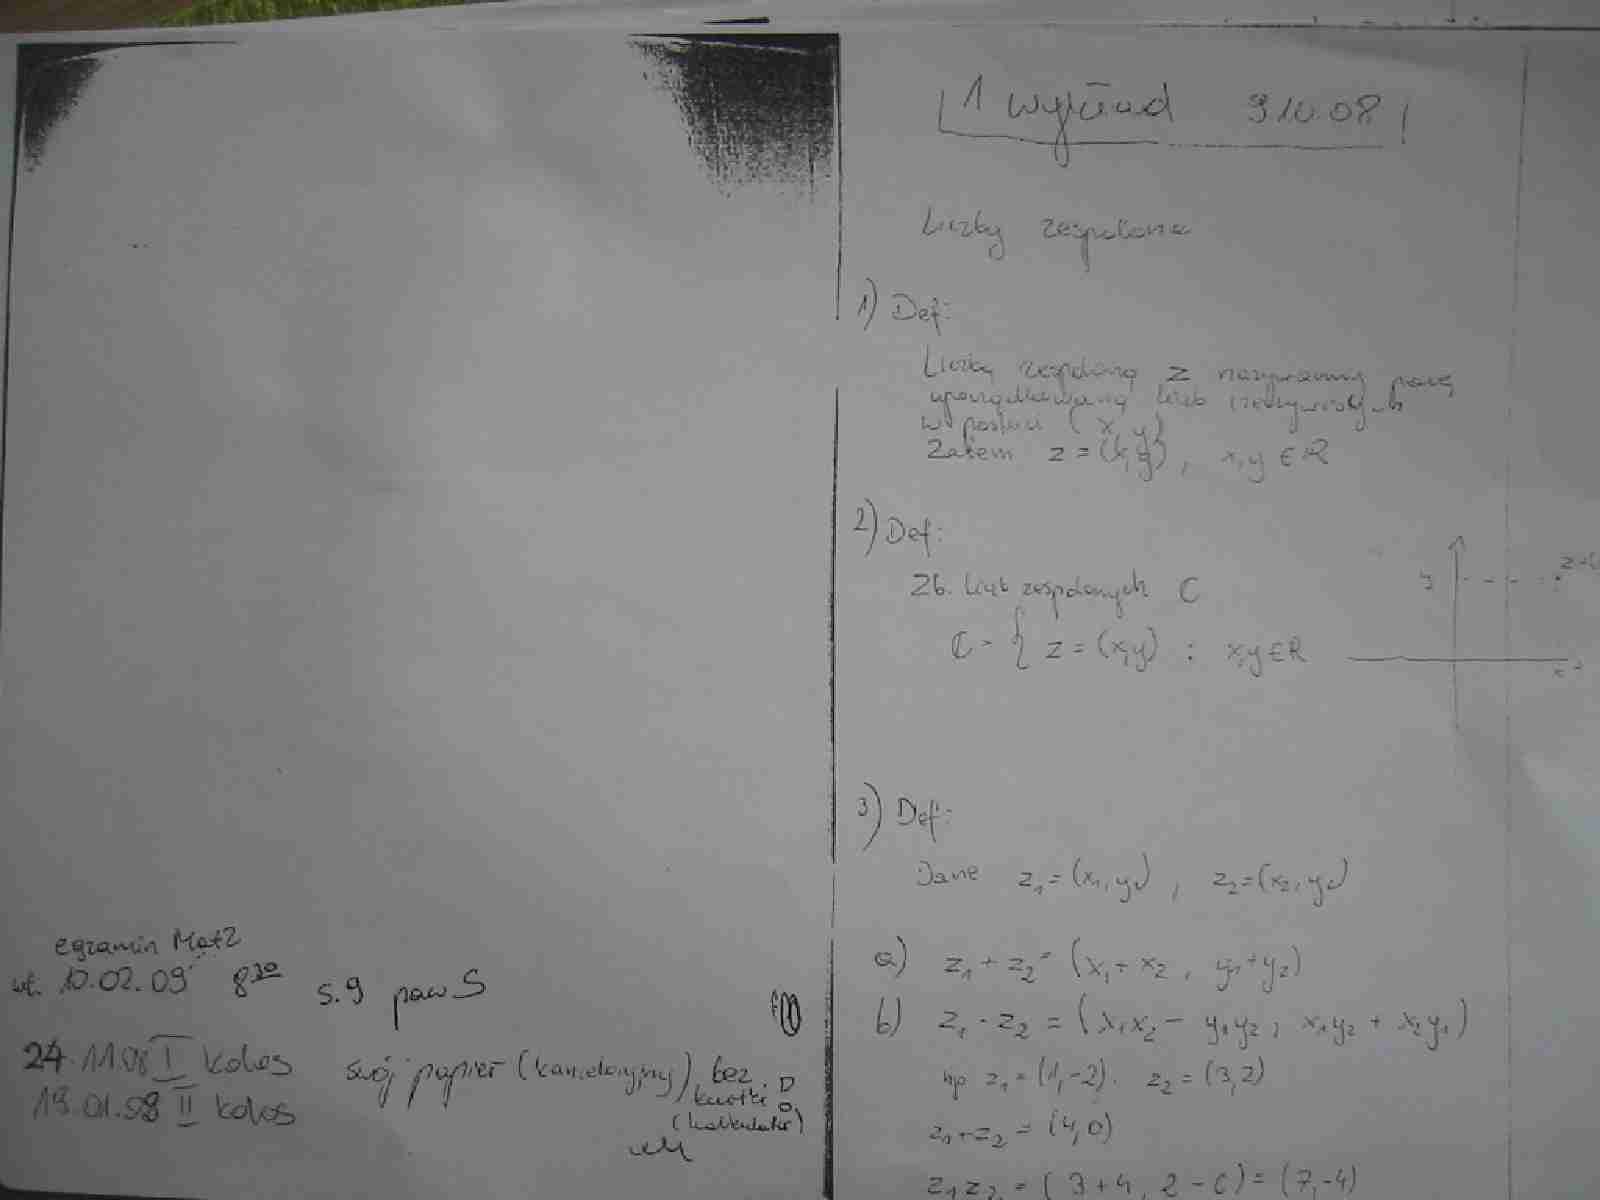 egzamin Mat2
wt. 10.02.09 8³⁰ s.9 paw S
24.11.08 I kolos
19.01.08 II kolos
swój papier (kancelaryjny), bez
kurtki
(kalkulator)
1 wykład 9.10.08
Liczby zespolone
1) Def:
Liczbą zespoloną z nazywamy parę
uporządkowaną liczb rzeczywistych
w postaci (x, y)
Zatem z = (x,y), x,y ∈ R
2) Def:
Zb. liczb zespolonych C
C = { z = (x,y) : x,y ∈ R
y
x
3) Def:
Dane z₁=(x₁,y₁), z₂=(x₂,y₂)
a) z₁+z₂=(x₁+x₂, y₁+y₂)
b) z₁·z₂ = (x₁x₂ − y₁y₂, x₁y₂ + x₂y₁)
np z₁=(1,-2). z₂=(3,2)
z₁+z₂ = (4,0)
z₁z₂ = (3+4, 2-6)=(7,-4)